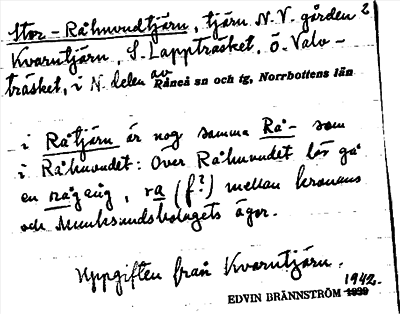 Stor-Råhuvudtjärn, tjärn N.V. gården 2
Kvarntjärn, S. Lappträsket, ö. Valv-
träsket, i N. delen av Råneå sn och tg, Norrbottens län
i Råtjärn är nog samma Rå- som
i Råhuvudet: Över Råhuvudet lär gå
en rågång, ra (f?) mellan kronans
och Munksundsbolagets ägor.
Uppgiften från Kvarntjärn.
EDVIN BRÄNNSTRÖM 1942.